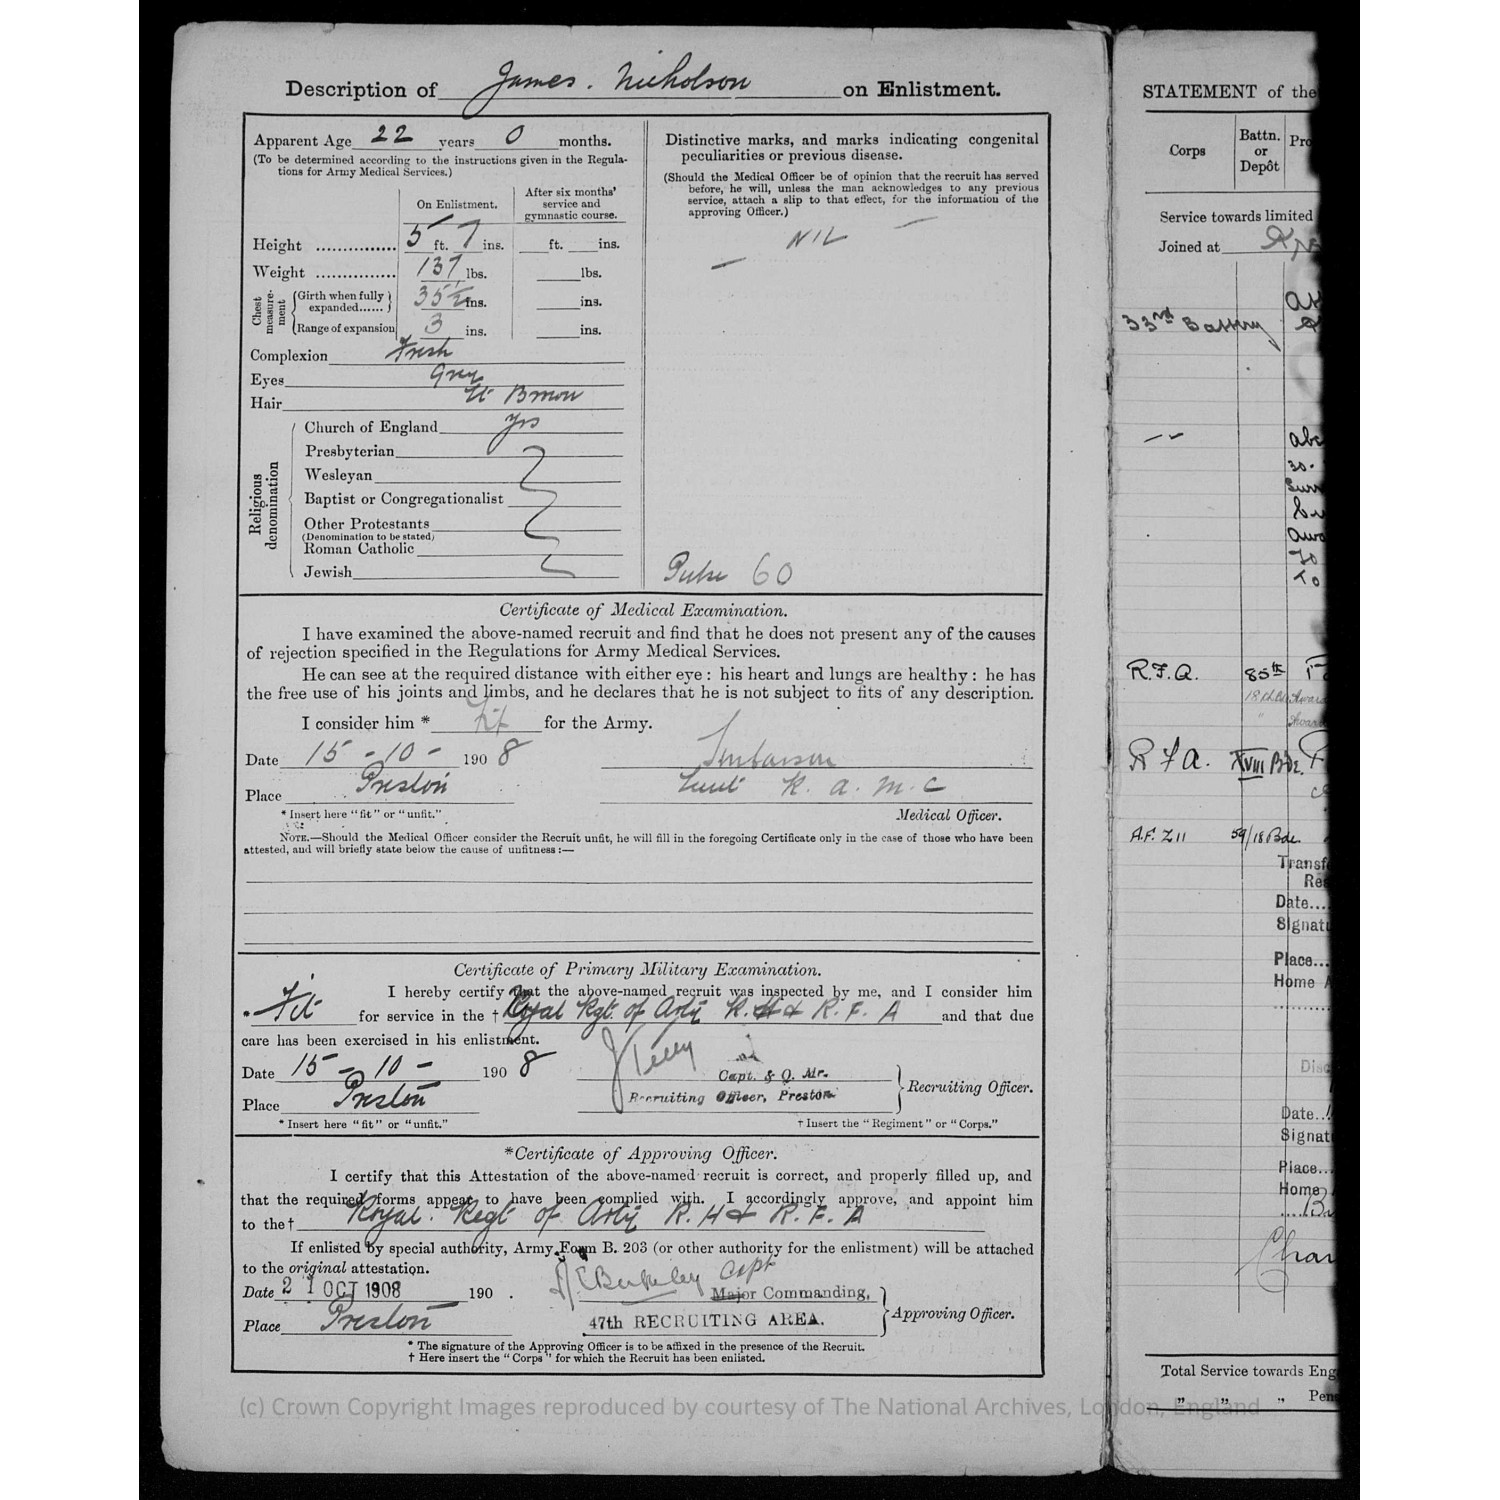 Description of James. Nicholson on Enlistment.
Apparent Age 22 years 0 months.
(To be determined according to the instructions given in the Regula-
tions for Army Medical Services.)
On Enlistment.
After six months'
service and
gymnastic course.
Height ............... 5 ft. 7 ins. ft. ins.
Weight ............... 137 lbs. lbs.
Chest measure-ment
Girth when fully
expanded...... 35½ ins. ins.
Range of expansion 3 ins. ins.
Complexion Fresh
Eyes Grey
Hair Lt Brown
Religious denomination
Church of England yes
Presbyterian
Wesleyan
Baptist or Congregationalist
Other Protestants
(Denomination to be stated)
Roman Catholic
Jewish
Distinctive marks, and marks indicating congenital
peculiarities or previous disease.
(Should the Medical Officer be of opinion that the recruit has served
before, he will, unless the man acknowledges to any previous
service, attach a slip to that effect, for the information of the
approving Officer.)
— NIL —
Pulse 60
Certificate of Medical Examination.
I have examined the above-named recruit and find that he does not present any of the causes
of rejection specified in the Regulations for Army Medical Services.
He can see at the required distance with either eye : his heart and lungs are healthy : he has
the free use of his joints and limbs, and he declares that he is not subject to fits of any description.
I consider him * Fit for the Army.
Date 15 - 10 - 190 8
Place Preston
Lieut R. A. M. C
* Insert here "fit" or "unfit."
Medical Officer.
NOTE.—Should the Medical Officer consider the Recruit unfit, he will fill in the foregoing Certificate only in the case of those who have been
attested, and will briefly state below the cause of unfitness :—
Certificate of Primary Military Examination.
I hereby certify that the above-named recruit was inspected by me, and I consider him
* Fit for service in the † Royal Rgt. of Arty R. H & R. F. A and that due
care has been exercised in his enlistment.
Date 15 - 10 - 190 8
Capt. & Q. Mr.
Recruiting Officer, Preston
Recruiting Officer.
Place Preston
* Insert here "fit" or "unfit."
† Insert the "Regiment" or "Corps."
*Certificate of Approving Officer.
I certify that this Attestation of the above-named recruit is correct, and properly filled up, and
that the required forms appear to have been complied with. I accordingly approve, and appoint him
to the† Royal. Regt of Arty R. H & R. F. A
If enlisted by special authority, Army Form B. 203 (or other authority for the enlistment) will be attached
to the original attestation.
Date 21 OCT 1908 190 .
Berkeley Capt
Major Commanding,
47th RECRUITING AREA.
Approving Officer.
Place Preston
* The signature of the Approving Officer is to be affixed in the presence of the Recruit.
† Here insert the "Corps" for which the Recruit has been enlisted.
(c) Crown Copyright Images reproduced by courtesy of The National Archives, London, England
STATEMENT of the
Corps
Battn.
or
Depôt
Pro
Service towards limited
Joined at
33rd Battery
R.F.A. 85th
R F A. XVIII Bde.
A.F. Z 11 59/18 Bde
Transf
Res
Date....
Signatu
Place...
Home A
Disc
Date..
Signatu
Place...
Home
Char
Total Service towards Eng
„ „ „ Pen